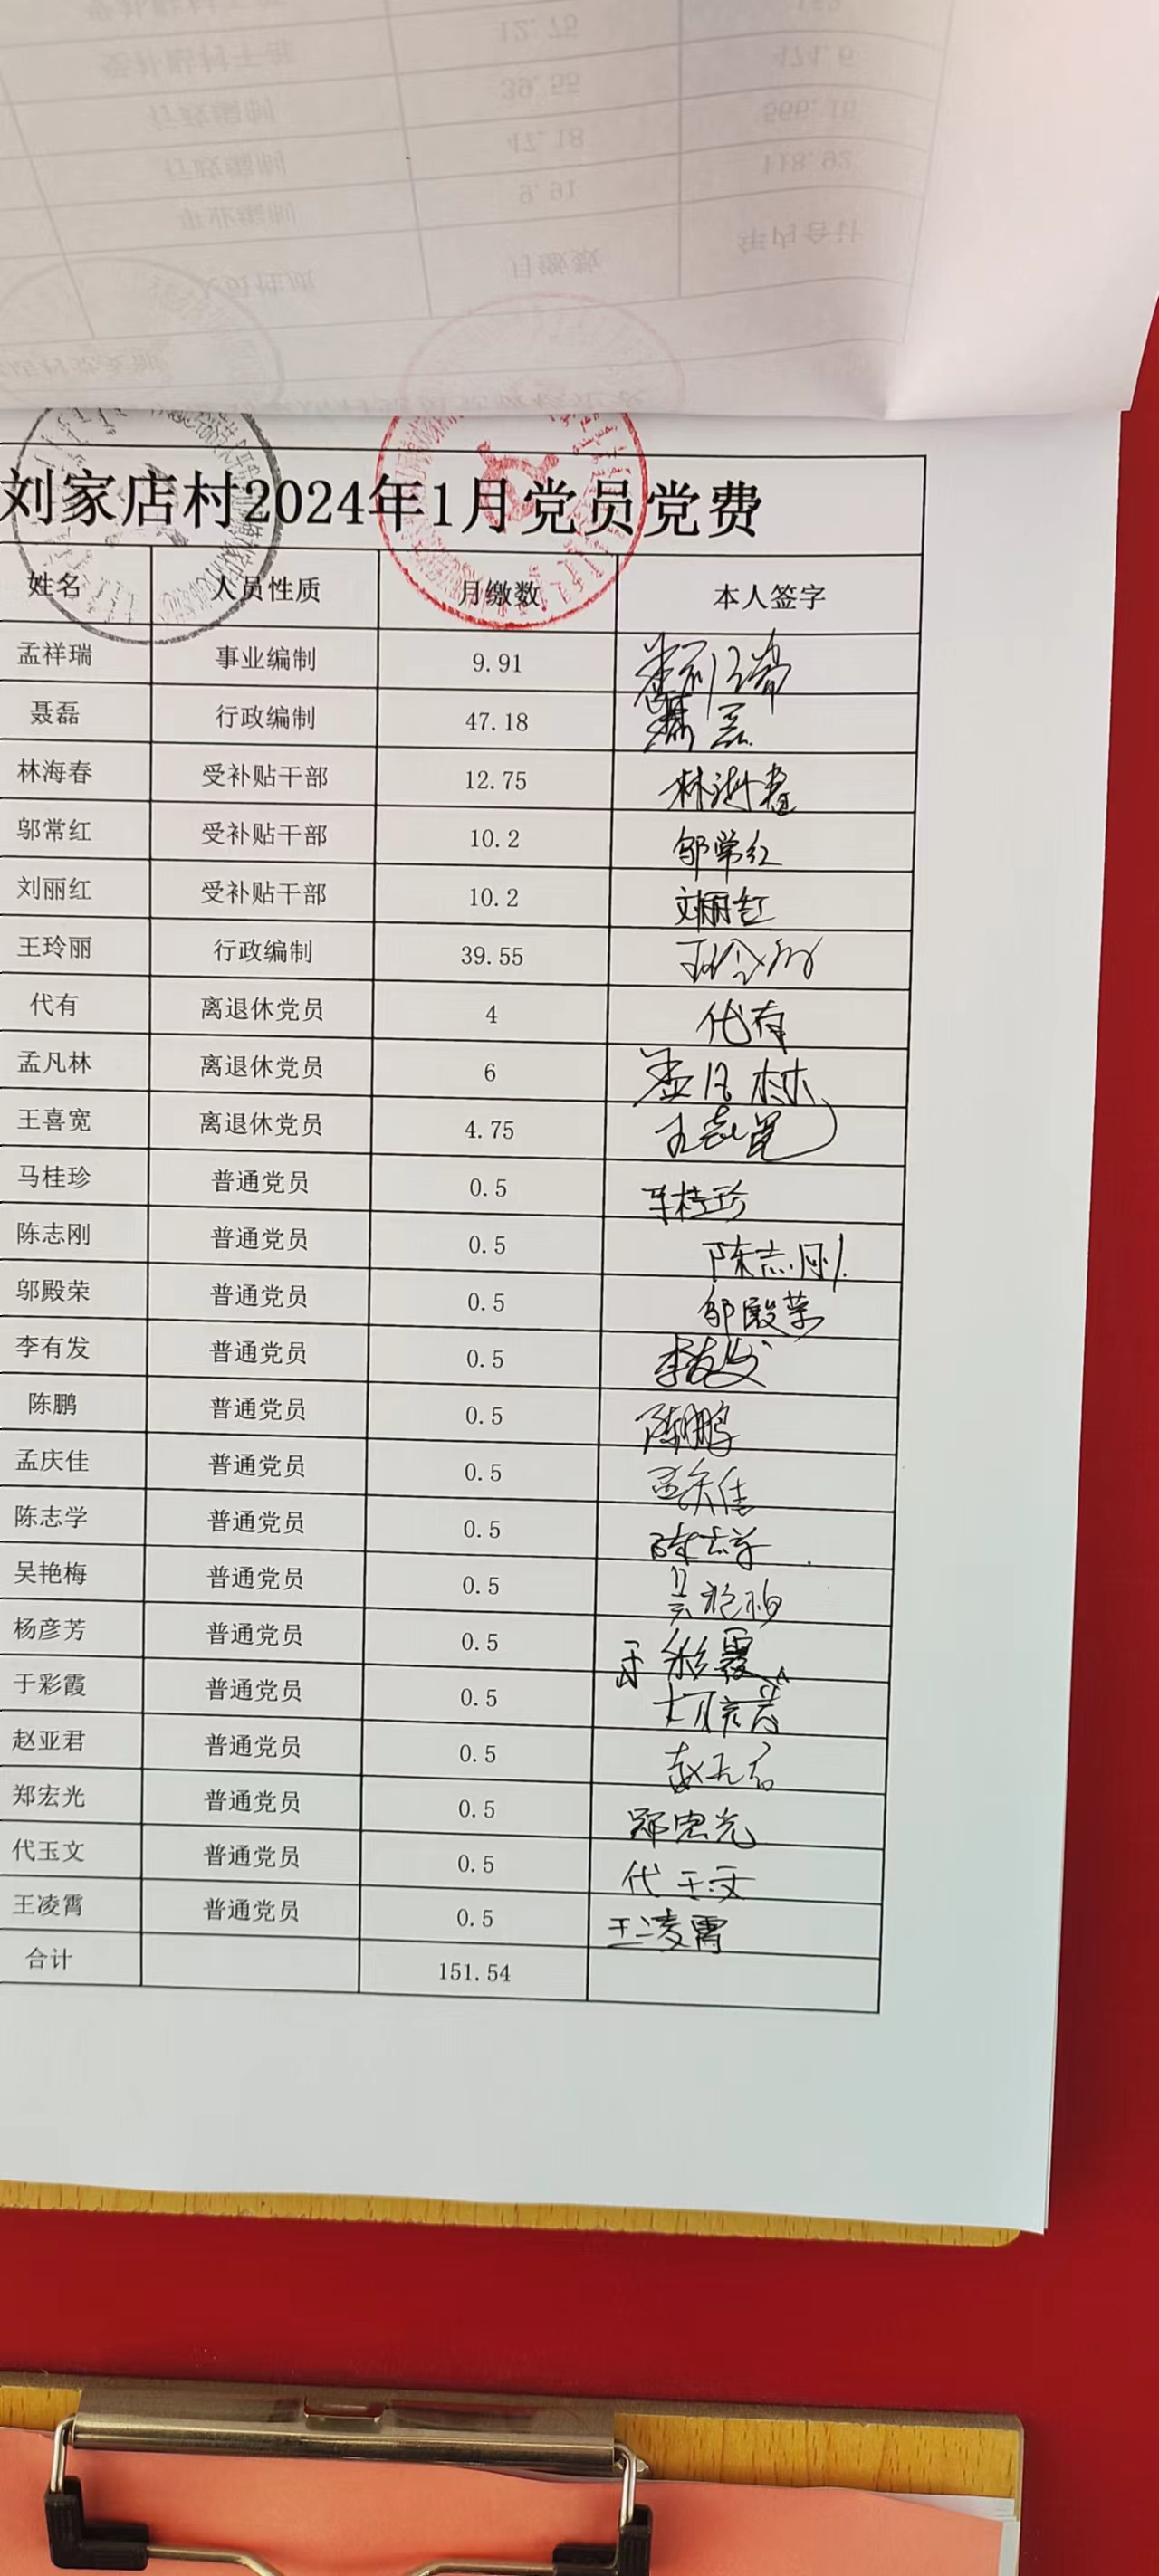 刘家店村2024年1月党员党费
姓名 人员性质 月缴数 本人签字
孟祥瑞 事业编制 9.91 孟祥瑞
聂磊 行政编制 47.18 聂磊
林海春 受补贴干部 12.75 林海春
邬常红 受补贴干部 10.2 邬常红
刘丽红 受补贴干部 10.2 刘丽红
王玲丽 行政编制 39.55 王玲丽
代有 离退休党员 4 代有
孟凡林 离退休党员 6 孟凡林
王喜宽 离退休党员 4.75 王喜宽
马桂珍 普通党员 0.5 马桂珍
陈志刚 普通党员 0.5 陈志刚
邬殿荣 普通党员 0.5 邬殿荣
李有发 普通党员 0.5 李有发
陈鹏 普通党员 0.5 陈鹏
孟庆佳 普通党员 0.5 孟庆佳
陈志学 普通党员 0.5 陈志学
吴艳梅 普通党员 0.5 吴艳梅
杨彦芳 普通党员 0.5 于彩霞
于彩霞 普通党员 0.5 杨彦芳
赵亚君 普通党员 0.5 赵亚君
郑宏光 普通党员 0.5 郑宏光
代玉文 普通党员 0.5 代玉文
王凌霄 普通党员 0.5 王凌霄
合计 151.54